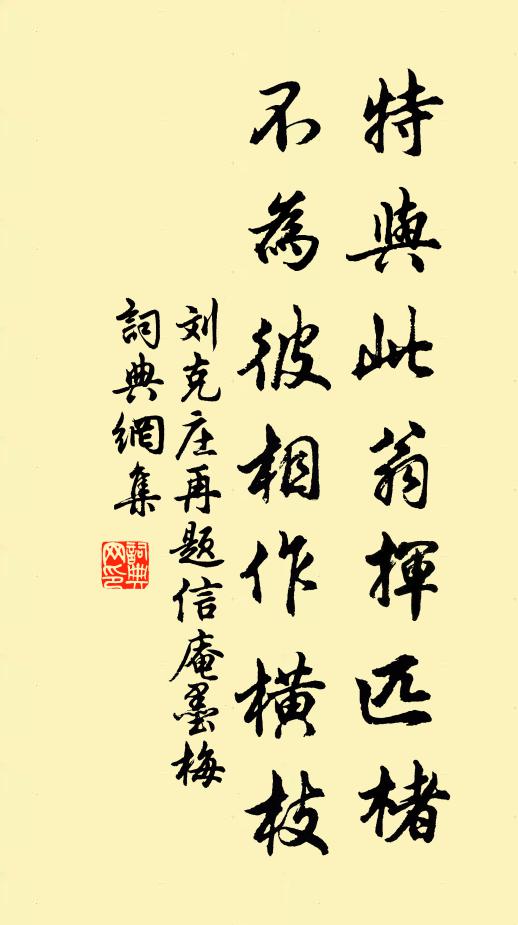 特與此翁揮匹楮
不為彼相作橫枝
刘克庄再题信庵墨梅
詞典網集
詞典网印